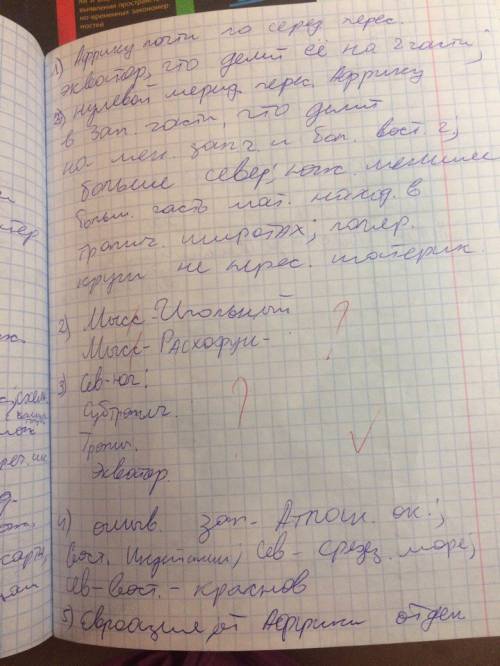 выявления пространст
но-временных закономер
ностей
1) Аффрику почти по серед. перес.
экватор, что делит её на 2 части;
3) нулевой мерид. перес. Аффрику
в Зап. части, что делит
на мен. зап. ч и бол. вост. ч;
больше север; южн. меньше
больш. часть мат. наход. в
тропич. широтах; поляр.
круги не перес. материк.
2) Мысс-Игольный ?
Мысс-Расхофун-
3) Сев-юг:
Субтропич. ?
Тропич.
Экватор.
4) омыв. зап.- Атлан. ок.;
Вост. Индейский; Сев - средез. море;
Сев-Вост.- красное
5) Евроазия от Аффрики отдел